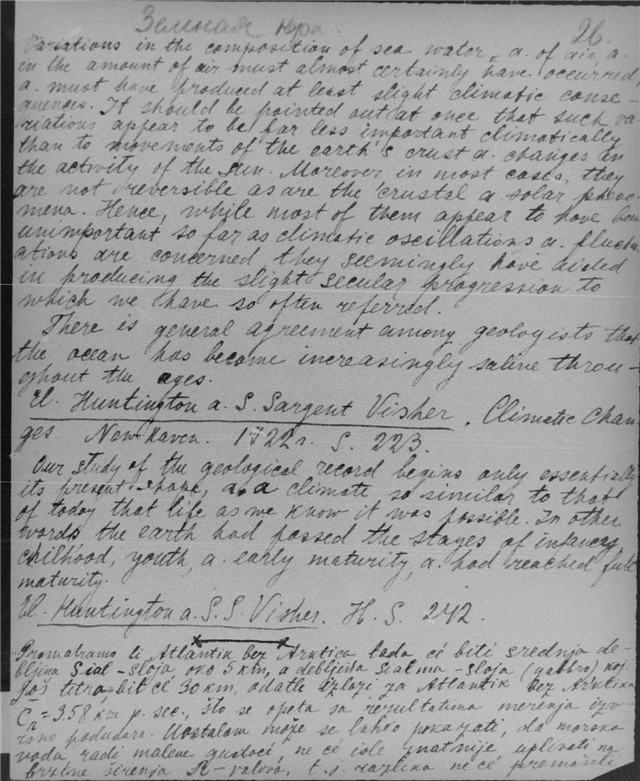 Земная кора. 26.
Variations in the composition of sea water, a. of air, a.
in the amount of air must almost certainly have occurred,
a. must have produced at least slight climatic conse-
quences. It should be pointed out at once that such va-
riations appear to be far less important climatically
than to movements of the earth's crust a. changes in
the activity of the sun. Moreover in most cases, they
are not reversible as are the crustal a. solar pheno-
mena. Hence, while most of them appear to have been
unimportant so far as climatic oscillations a. fluctu-
ations are concerned they seemingly have aided
in producing the slight secular progression to
which we have so often referred.
There is general agreement among geologists that
the ocean has become increasingly saline throu-
ghout the ages.
El. Huntington a. S. Sargent Visher. Climatic Chan-
ges. New Haven. 1922. S. 223.
Our study of the geological record begins only essentially
its present shape, a. a climate, so similar to that
of today that life as we know it was possible. In other
words the earth had passed the stages of infancy,
chilhood, youth, a. early maturity, a. had reached full
maturity.
El. Huntington a. S.S. Visher. H. S. 242.
Promatramo li Atlantik bez Arktica tada će biti srednja de-
bljina Sial-sloja oko 5 km, a debljina sialma-sloja (gabbro) koj
još titra, bit će 30 km, odatle izlazi za Atlantik bez Arktika
= 3.58 km p. sec., što se opeta sa rezultatima merenja
podudara. Uostalom može se lahko pokazati, da morska
voda radi malene gustoće, ne će iole znatnije uplivati na
brzine širenja R-valova, t. j. razlika ne će premašiti